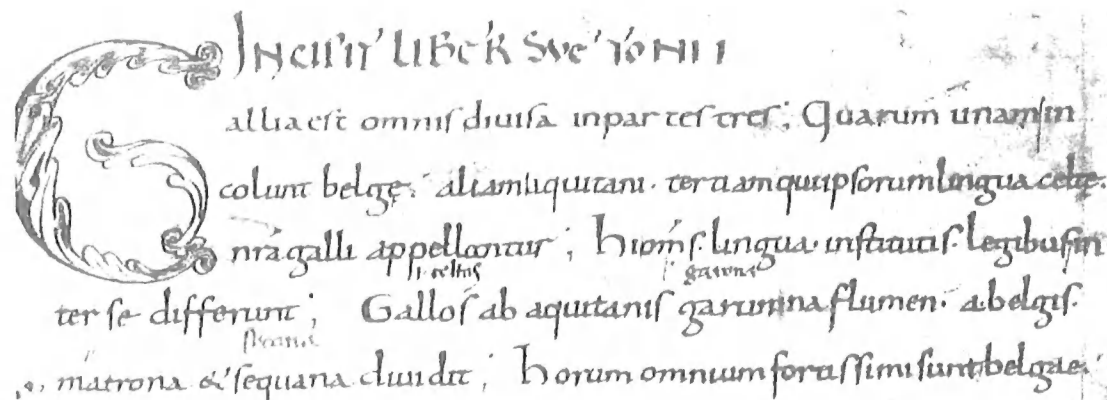 INCIPIT LIBER SVETONII
Gallia est omnis diuisa inpartes tres; Quarum unam in
colunt belgę. aliam aquitani. tertiam qui ipsorum lingua celtę.
nr̃a galli appellantur; hi om̃s lingua institutis legibus in
i. celtas garunna
ter se differunt; Gallos ab aquitanis garunna flumen. a belgis.
matrona & sequana diuidit; horum omnium fortissimi sunt belgae.